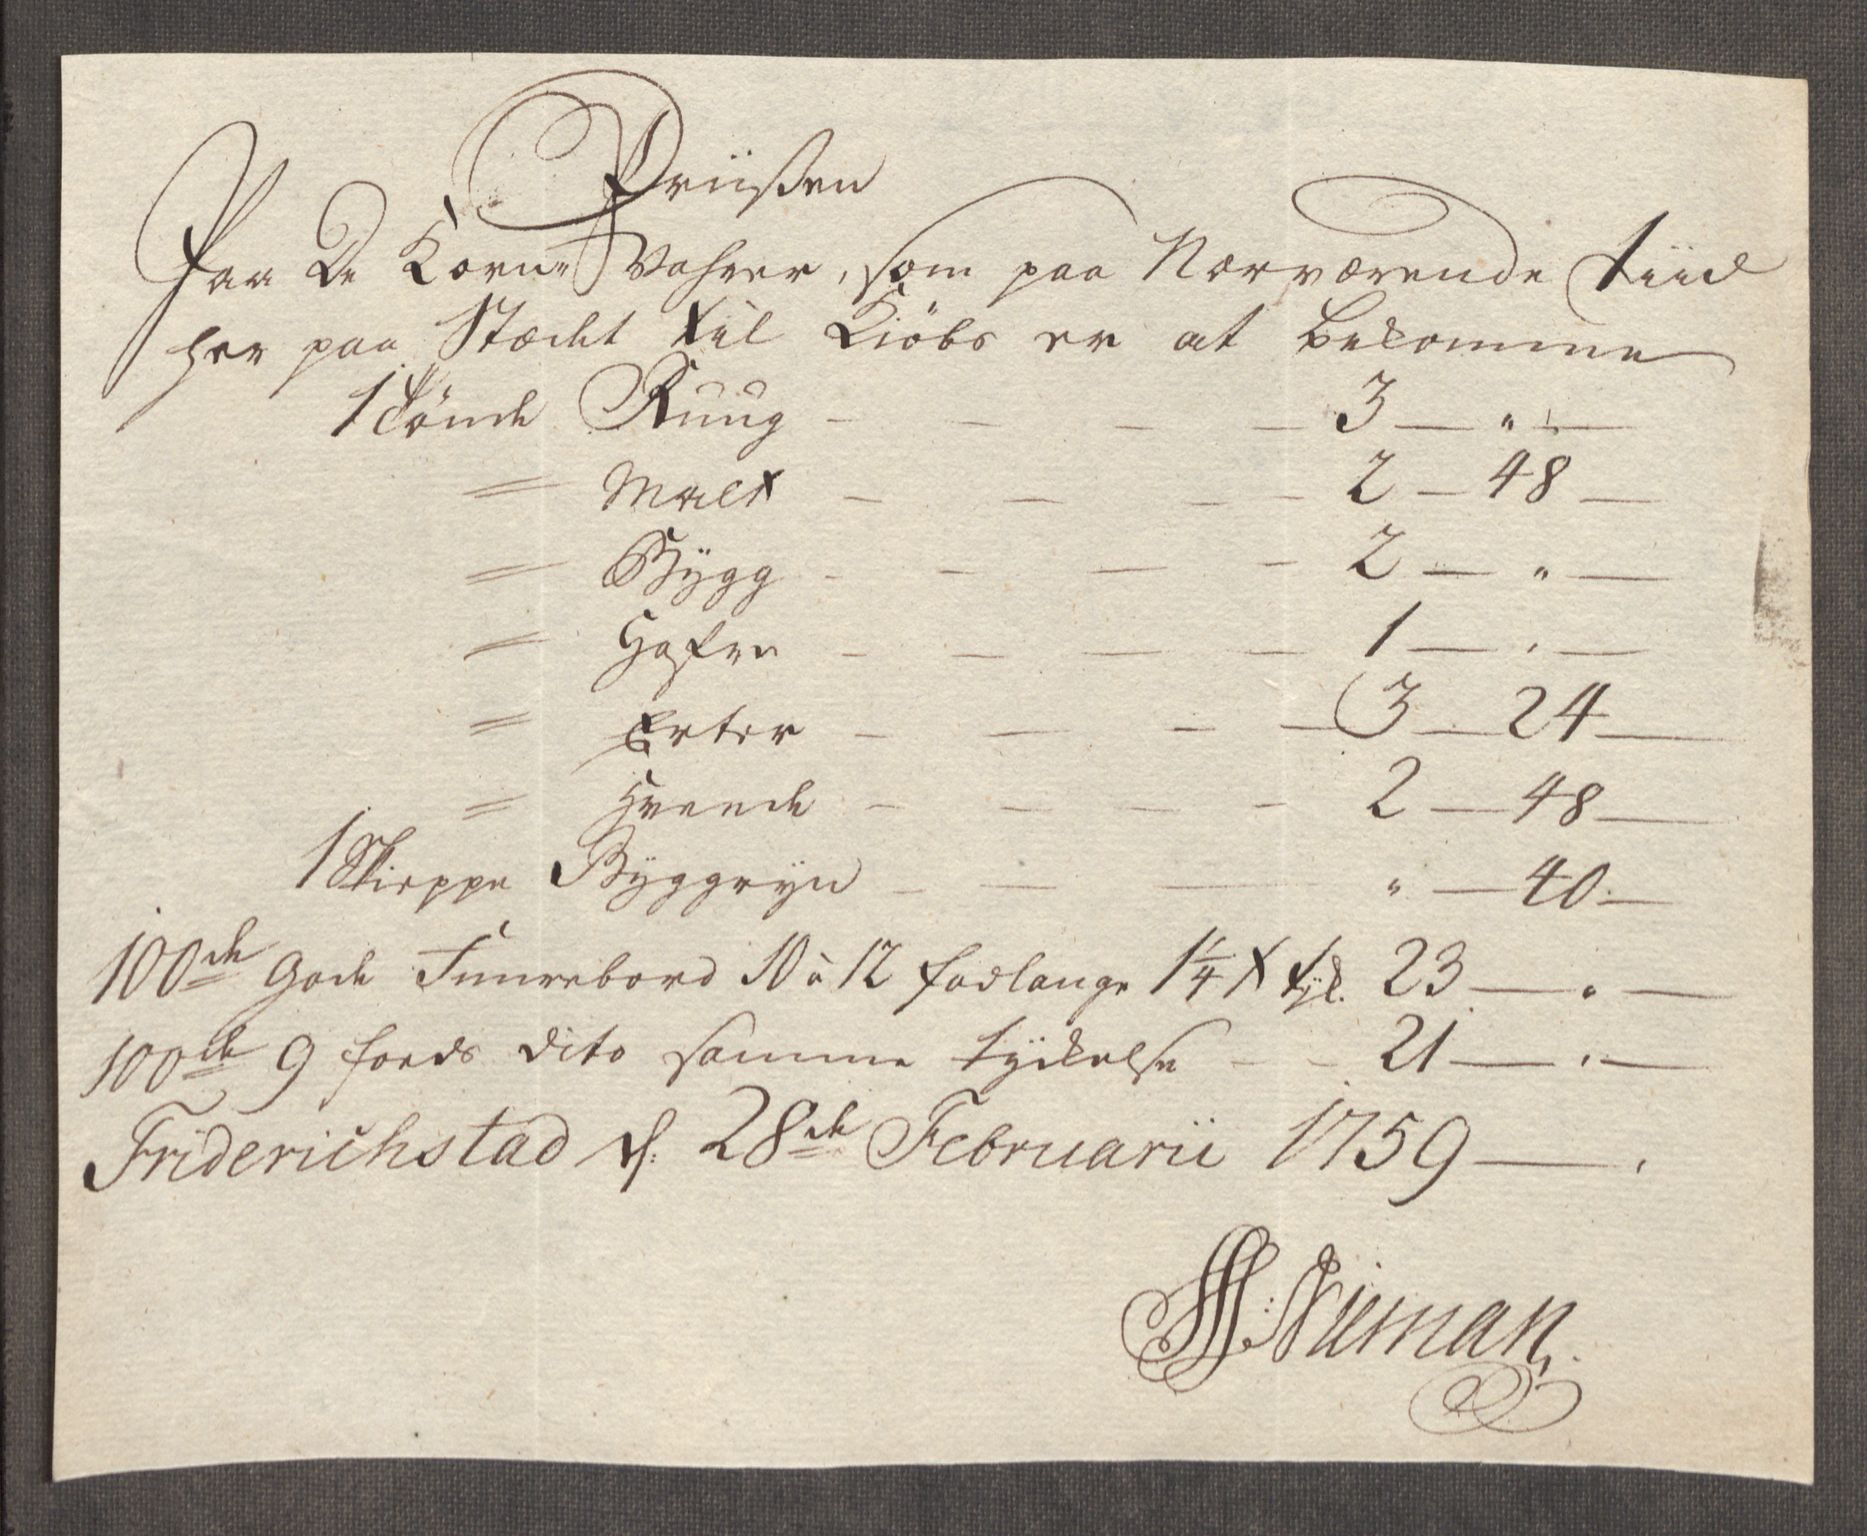 Priisen
Paa De Korn Vahrer, som paa Nærværende tiid
her paa Stædet til Kiöbs er at bekomme
1 Tønde Ruug — — — — 3 — " —
= Malt — — — — 2 — 48 —
= Bÿgg — — — — 2 — " —
= Hafre — — — — 1 — . —
= Erter — — — — 3 — 24 —
= Hveede — — — — 2 — 48 —
1 Skieppe Bÿggrÿn — — — " — 40 —
100de gode Furrebord 10 à 12 fodlange 1¼ t tÿk. 23 — . —
100de 9 foeds dito samme tÿckelse — — 21 — . —
Friderichstad d: 28de Februarii 1759 — .
Nieman